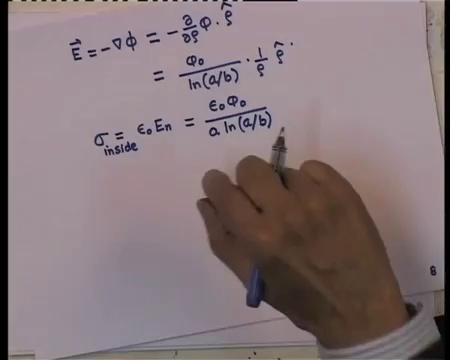 E⃗ = -∇φ = - ∂/∂ρ φ · ρ̂
= φ₀ / ln(a/b) · 1/ρ ρ̂ .
σ inside = ε₀ Eₙ = ε₀ φ₀ / a ln(a/b)
8